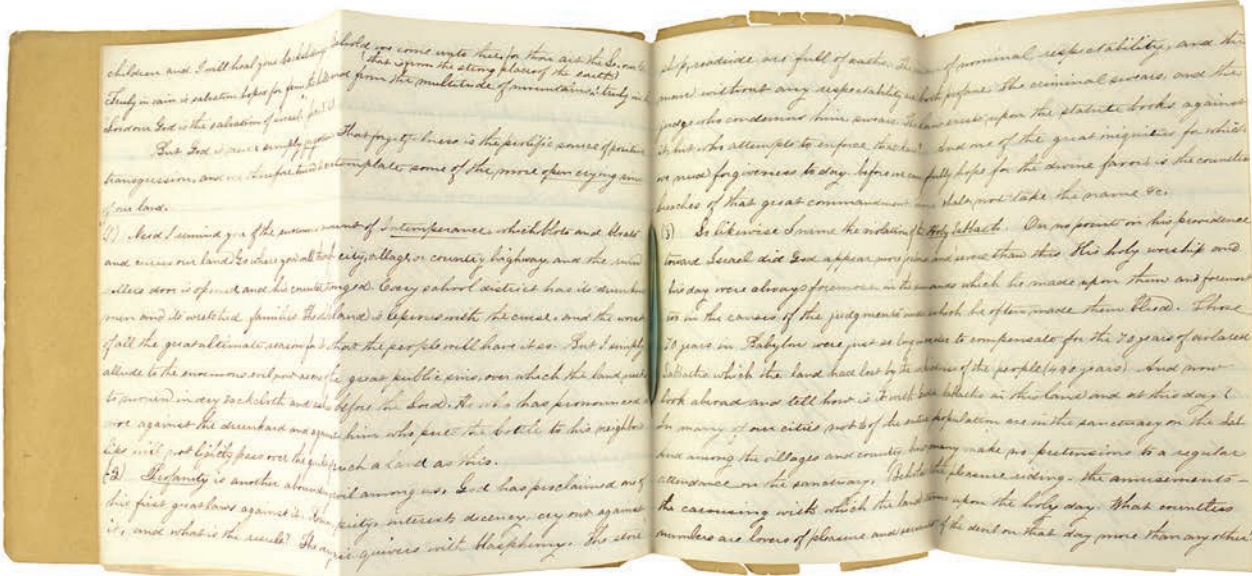 children and I will heal your backsliding Behold we come unto thee for thou art the Lord our
(that is from the strong places of the earth)
Truly in vain is salvation hoped for from the hills and from the multitude of mountains: truly in the
Lord our God is the salvation of Israel. Jer 3.
But God is never simply That forgetfulness is the prolific source of positive
transgression, and we therefore turn to contemplate some of the more open crying sins
of our land.
(1) Need I remind you of the enormous amount of Intemperance which blots and bloats
and curses our land. Go where you will through city, village, or country, highway and the rum
sellers door is opened and his counter Every school district has its drunken
men and its wretched families. The island is leprous with the curse, and the worst
of all the great ultimate reason is that the people will have it so. But I simply
allude to the enormous evil now as one of the great public sins, over which the land needs
to mourn in dry sackcloth and ashes before the Lord. He who has pronounced a
woe against the drunkard and against him who puts the bottle to his neighbors
lips will not lightly pass over the guilt of such a land as this.
(2) Profanity is another abounding evil among us. God has proclaimed one of
his first great laws against it. interests decency, cry out against
it, and what is the result? The air quivers with blasphemy. The store
ship, roadside are full of oaths. The man of nominal respectability, and the
man without any respectability are both profane. The criminal swears, and the
judge who condemns him swears. The law exists upon the statute books against
it, but who attempts to enforce them? And one of the great iniquities for which
we need forgiveness to day, before we can fully hope for the divine favor, is the countless
breaches of that great commandment, thou shalt not take the name &c.
(3) So likewise I name the violation of the Holy Sabbath. On no point in his providence
toward Israel did God appear more jealous and severe than this. His holy worship and
his day were always foremost in the demands which he made upon them and foremost
too in the causes of the judgments under which he often made them bleed. Those
70 years in Babylon were just so long in order to compensate for the 70 years of violated
Sabbaths which the land had lost by the of the people (490 years). And now
look abroad and tell how is it with Sabbaths in this land and at this day?
In many of our cities not of the entire population are in the sanctuary on the Sab
And among the villages and country, how many make no pretensions to a regular
attendance in the sanctuary. Behold the pleasure riding - the amusements -
the carousing with which the land upon the holy day. What countless
numbers are lovers of pleasure and servants of the devil on that day more than any other